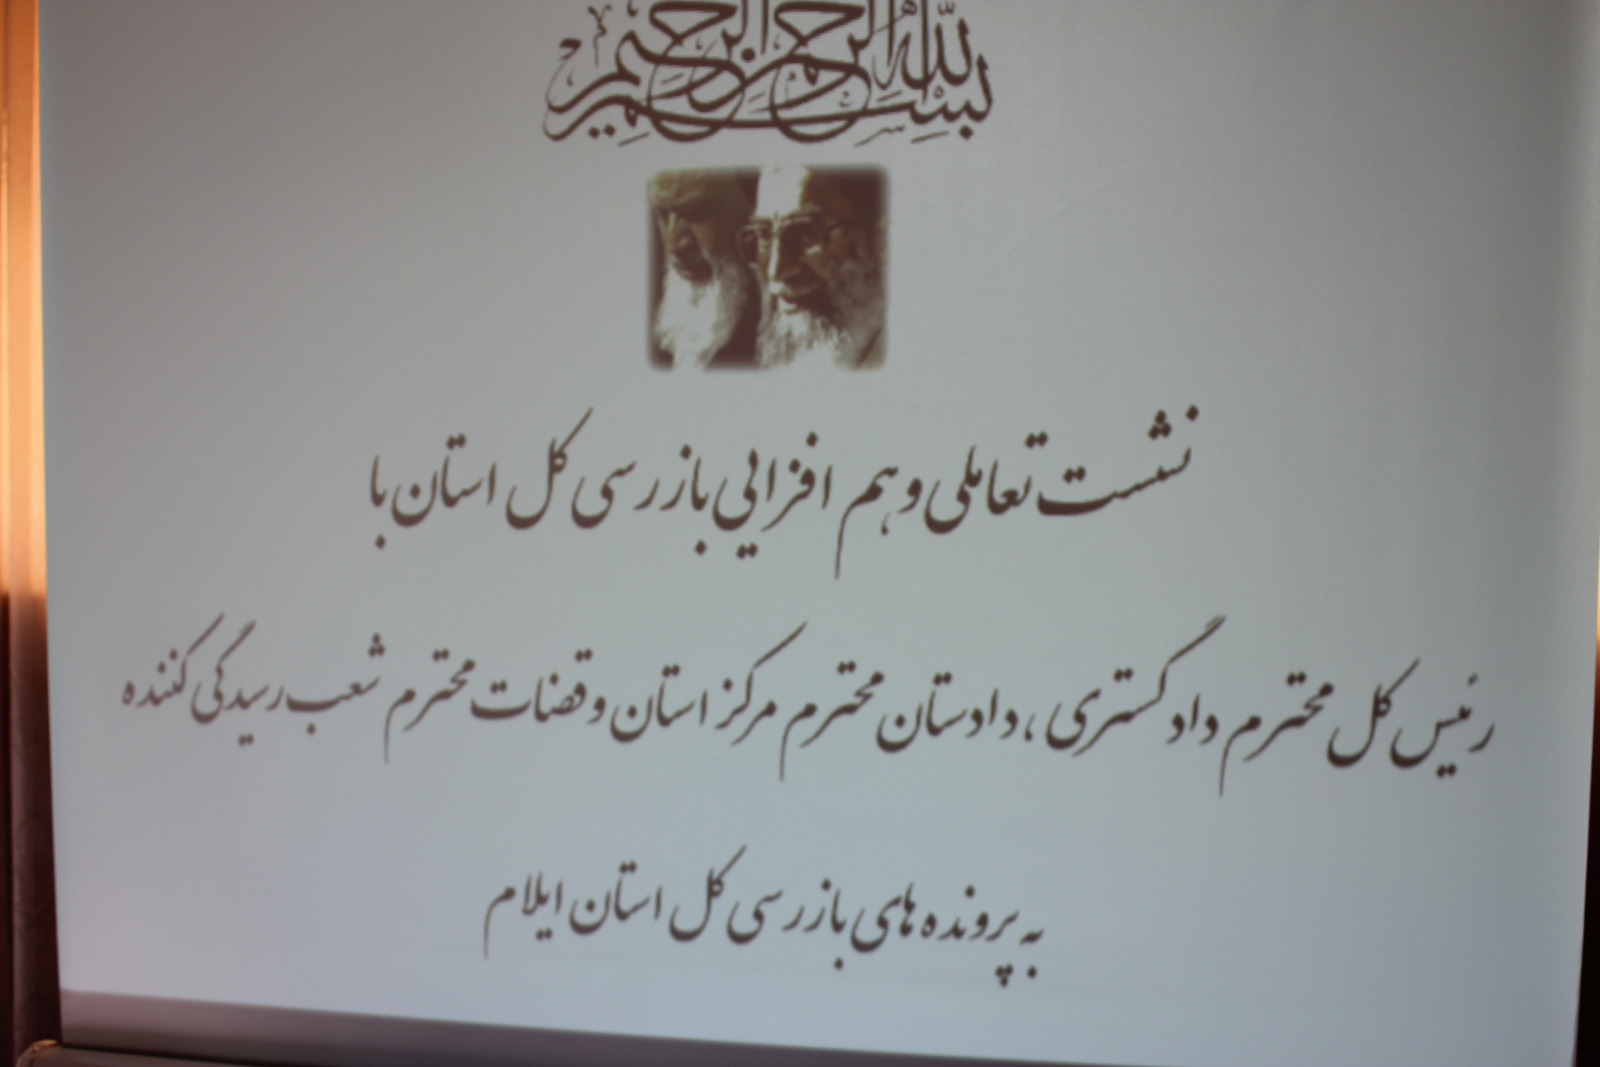 بسم الله الرحمن الرحیم
نشست تعاملی و هم افزایی بازرسی کل استان با
رئیس کل محترم دادگستری ، دادستان محترم مرکز استان و قضات محترم شعب رسیدگی کننده
به پرونده های بازرسی کل استان ایلام